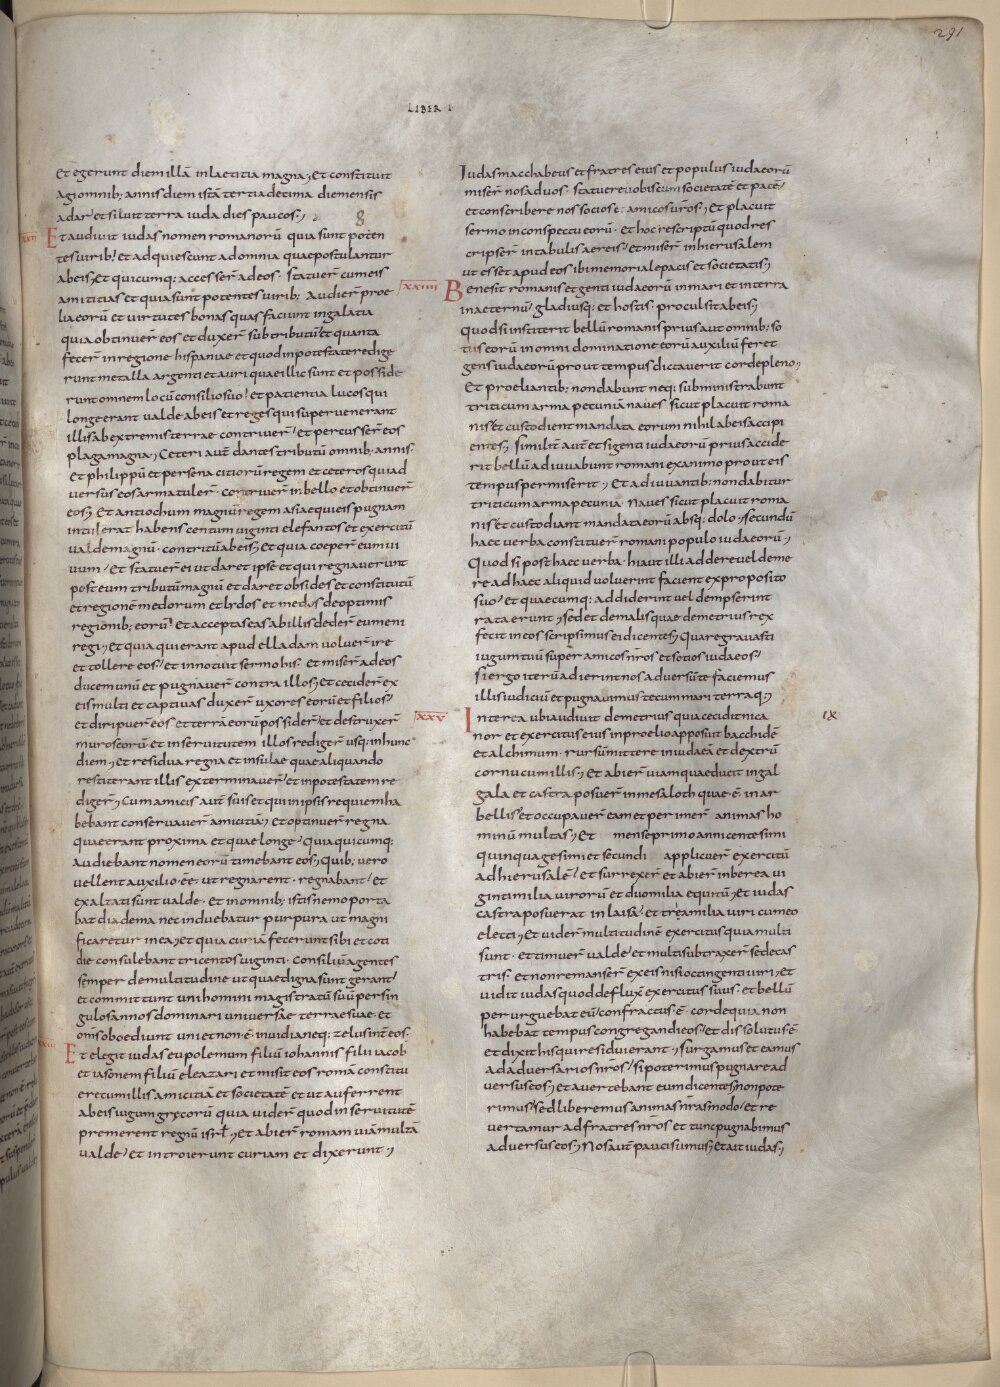 291
LIBER I
Et egerunt diem illā in laetitia magna; Et constituit
agi omnib; annis diem istā tertia decima die mensis
adar et siluit terra iuda dies paucos;
8
xxii
Et audiuit iudas nomen romanorū quia sunt poten
tes uirib; et adquiescunt ad omnia quae postulantur
ab eis; Et quicumq; accesser̄ ad eos statuer̄ cum eis
amicitias et quia sunt potentes uirib; Audier̄ proe
lia eorū et uirtutes bonas quas faciunt in galatia
quia obtinuer̄ eos et duxer̄ sub tributū et quanta
fecer̄ in regione hispaniae et quod in potestate redige
runt metalla argenti et auri quae illic sunt et posside
runt omnem locū consilio suo et patientia Locos qui
longe erant ualde ab eis et reges qui superuenerant
illis ab extremis terrae contriuer̄ et percusser̄ eos
plaga magna; Ceteri autē dant eis tributū omnib annis
Et philippū et persen a citiorū regem et ceteros qui ad
uersus eos arma tuler̄ contriuer̄ in bello et obtinuer̄
eos; Et antiochum magnū regem asiae qui eis pugnam
intulerat habens centum uiginti elefantos et exercitū
ualde magnū contritū ab eis; Et quia coeper̄ eum ui
uum Et statuer̄ ei ut daret ipse et qui regnauerunt
post eum tributū magnū et daret obsides et constitutū
et regionē medorum et lydos et medos de optimis
regionib; eorū Et acceptas eas ab illis deder̄ eumeni
regi; et quia qui erant apud elladam uoluer̄ ire
et tollere eos et innotuit sermo his et miser̄ ad eos
ducem unū et pugnauer̄ contra illos; et cecider̄ ex
eis multi et captiuas duxer̄ uxores eorū et filios
et diripuer̄ eos et terrā eorū posseder̄ et destruxer̄
muros eorū et in seruitutem illos rediger̄ usq; in hunc
diem; Et residua regna et insulae quae aliquando
restiterant illis exterminauer̄ et in potestatem re
diger̄; Cum amicis autē suis et qui in ipsis requiem ha
bebant conseruauer̄ amicitiā; Et optinuer̄ regna
quae erant proxima et quae longe Quia quicumq;
audiebant nomen eorū timebant eos; Quib; uero
uellent auxilio ēe ut regnarent regnabant et
exaltati sunt ualde et in omnib; istis nemo porta
bat diadema nec induebatur purpura ut magni
ficaretur in ea; et quia curiā fecerunt sibi et coti
die consulebant tricentos uiginti Consiliū agentes
semper de multitudine ut quae digna sunt gerant
et committunt uni homini magistratū suū per sin
gulos annos dominari uniuersae terrae suae et
oms oboediunt uni et non ē inuidia neq; zelus int̄ eos
xxiii
Et elegit iudas eupolemum filiū iohannis filii iacob
et iasonem filiū eleazari et misit eos romā constitu
ere cum illis amicitiā et societatē et ut auferrent
ab eis iugum grecorū quia uider̄ quod in seruitutē
premerent regnū isrl; et abier̄ romam uiam multā
ualde et introierunt curiam et dixerunt;
Iudas macchabeus et fratres eius et populus iudaeorū
miser̄ nos ad uos statuere uobiscum societatē et pacē
et conscribere nos socios et amicos ūros; Et placuit
sermo in conspectu eorū et hoc rescriptū quod res
cripser̄ in tabulis aereis et miser̄ in hierusalem
ut esset apud eos ibi memoriale pacis et societatis;
xxiiii
Bene sit romanis et genti iudaeorū in mari et in terra
in aeternū gladiusq; et hostis procul sit ab eis;
Quod si institerit bellū romanis prius aut omnib; so
tiis eorū in omni dominatione eorū auxiliū feret
gens iudaeorū prout tempus dictauerit corde pleno;
Et proeliantib; non dabunt neq; subministrabunt
triticum arma pecuniā naues sicut placuit roma
nis et custodient mandata eorum nihil ab eis accipi
entes; Similit̄ autē et si genti iudaeorū prius accide
rit bellū adiuuabunt romani ex animo prout eis
tempus permiserit; Et adiuuantib; non dabitur
triticum arma pecunia Naues sicut placuit roma
nis et custodiant mandata eorū absq; dolo; secundū
haec uerba constituer̄ romani populo iudaeorū;
Quod si post haec uerba hi aut illi addere uel deme
re ad haec aliquid uoluerint facient ex proposito
suo et quaecumq; addiderint uel dempserint
rata erunt; sed et de malis quae demetrius rex
fecit in eos scripsimus ei dicentes; Quare grauasti
iugum tuū super amicos n̄ros et sotios iudaeos
si ergo iterū adierint nos aduersū te faciemus
illis iudiciū et pugnauimus tecum mari terraq;;
xxv
IX
Interea ubi audiuit demetrius quia cecidit nica
nor et exercitus eius in proelio apposuit bacchidē
et alchimum rursū mittere in iudaeā et dextrū
cornu cum illis; Et abier̄ uiam quae ducit in gal
gala et castra posuer̄ in mesaloth quae ē in ar
bellis et occupauer̄ eam et perimer̄ animas ho
minū multas; Et mense primo anni centesimi
quinquagesimi et secundi applicuer̄ exercitū
ad hierusalē et surrexer̄ et abier̄ in berea ui
ginti milia uirorū et duo milia equitū; et iudas
castra posuerat in laisa et trea milia uiri cum eo
electi; et uider̄ multitudinē exercitus quia multi
sunt et timuer̄ ualde et multi subtraxer̄ se de cas
tris et non remanser̄ ex eis nisi octingenti uiri; et
uidit iudas quod defluxē exercitus suus et bellū
perurguebat eū confractus ē corde quia non
habebat tempus congregandi eos et dissolutus ē
et dixit his qui residui erant; surgamus et eamus
ad aduersarios n̄ros si poterimus pugnare ad
uersus eos; et auertebant eum dicentes; non pote
rimus sed liberemus animas n̄ras modo et re
uertamur ad fratres n̄ros et tunc pugnabimus
aduersus eos; Nos autē pauci sumus; et ait iudas;